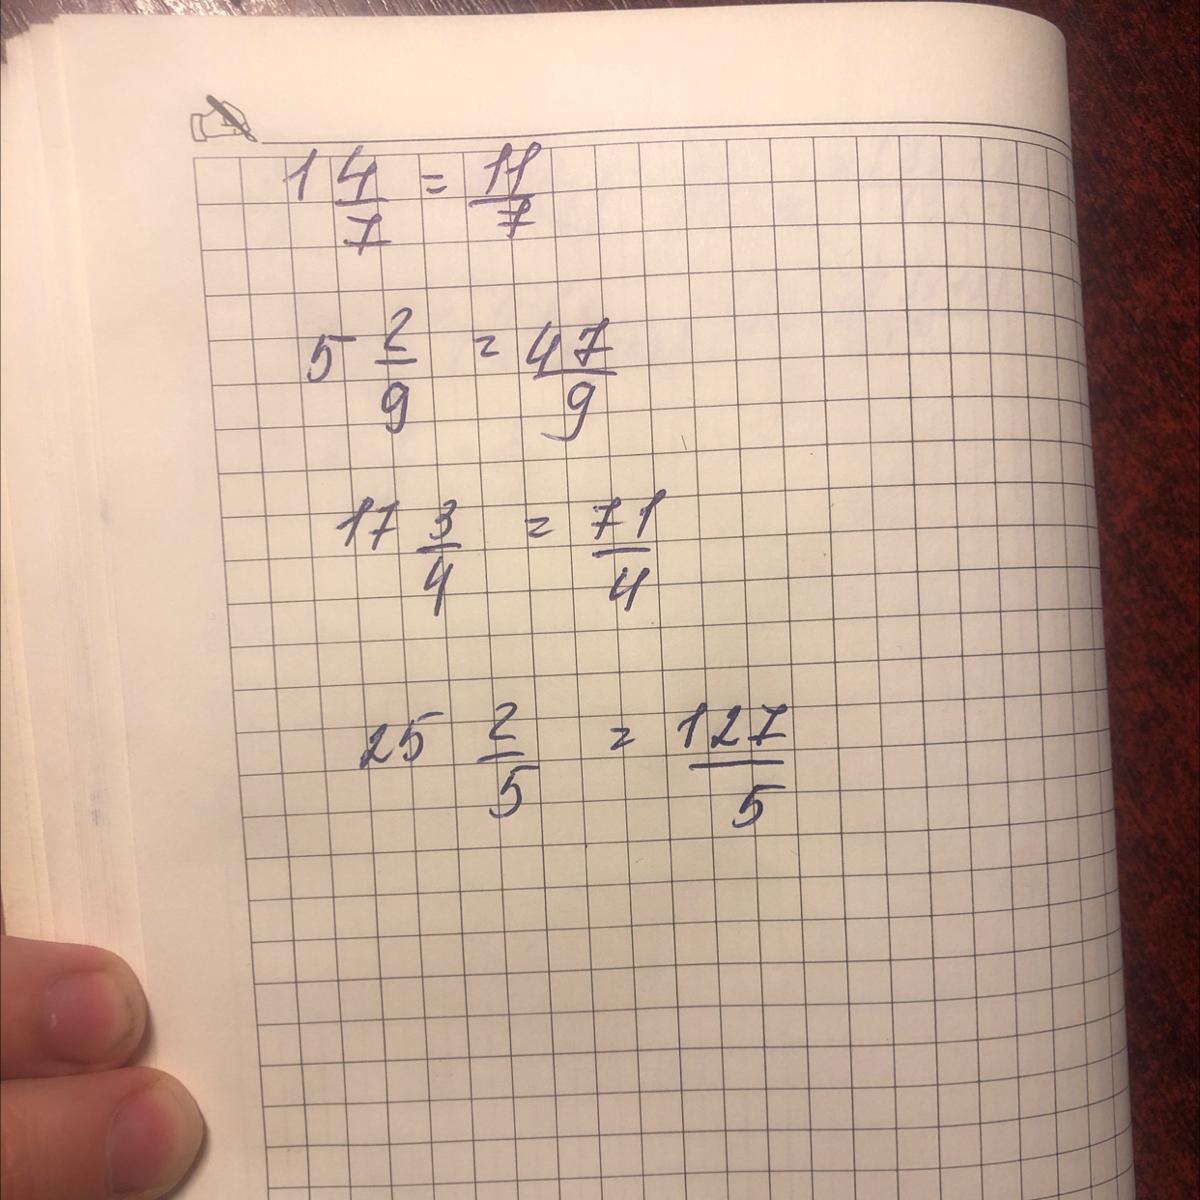 1 4/7 = 11/7
5 2/9 = 47/9
17 3/4 = 71/4
25 2/5 = 127/5